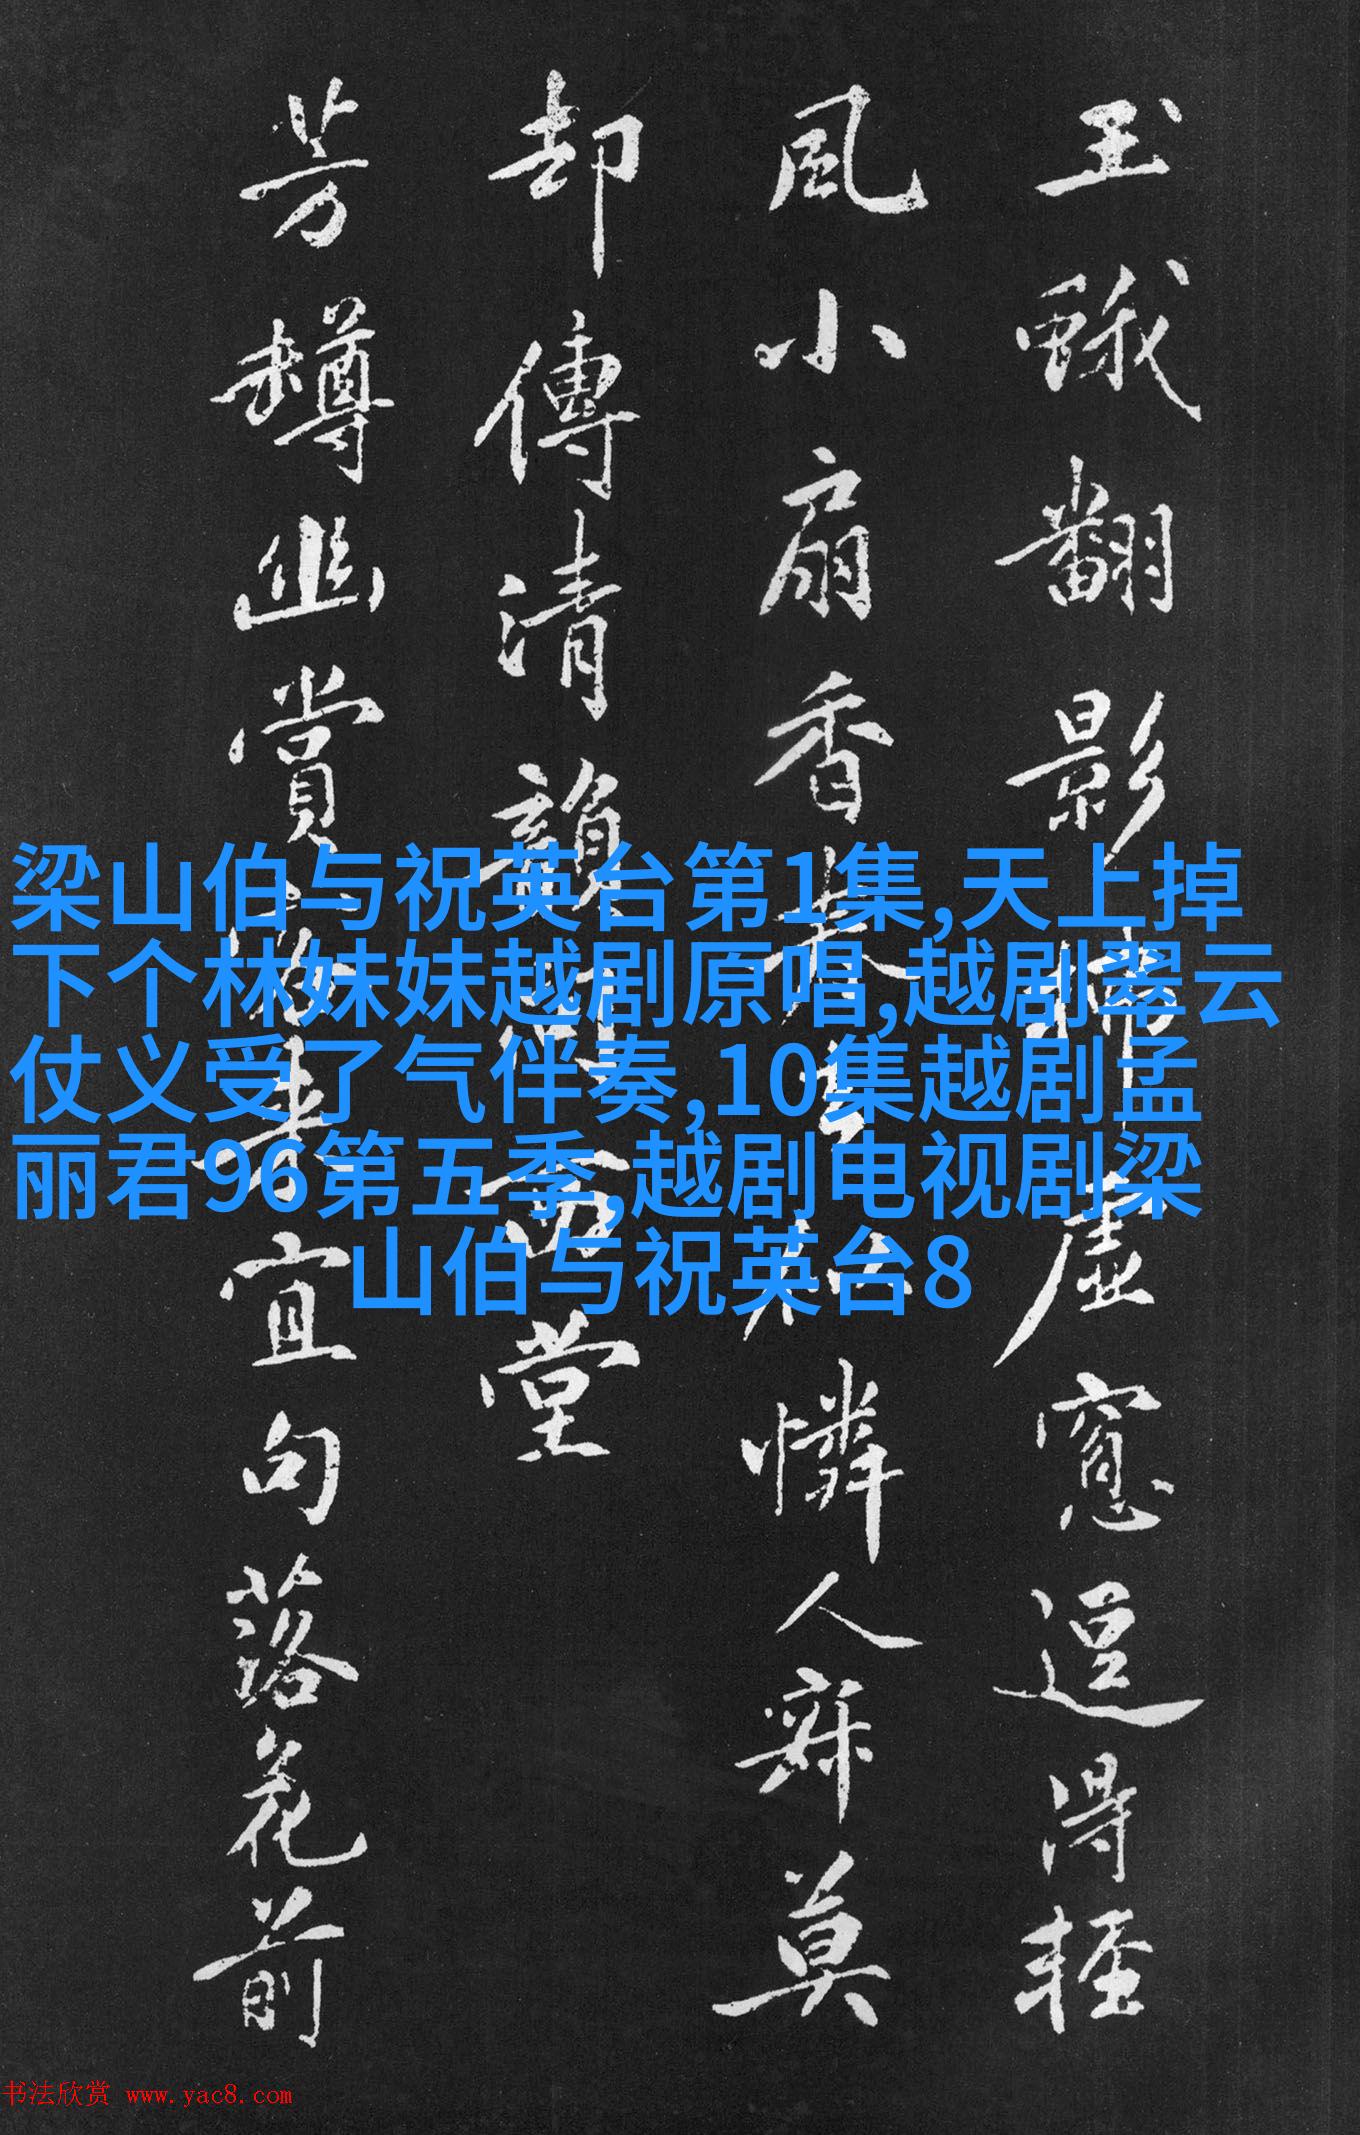 玉蛾翻影
虚窗逗得轻
風小扇香
憐人寂莫
却傳清韻
堂
芳樽幽賞
宜句落花前
梁山伯与祝英台第1集,天上掉
下个林妹妹越剧原唱,越剧翠云
仗义受了气伴奏,10集越剧孟
丽君96第五季,越剧电视剧梁
山伯与祝英台8
书法欣赏 www.yac8.com